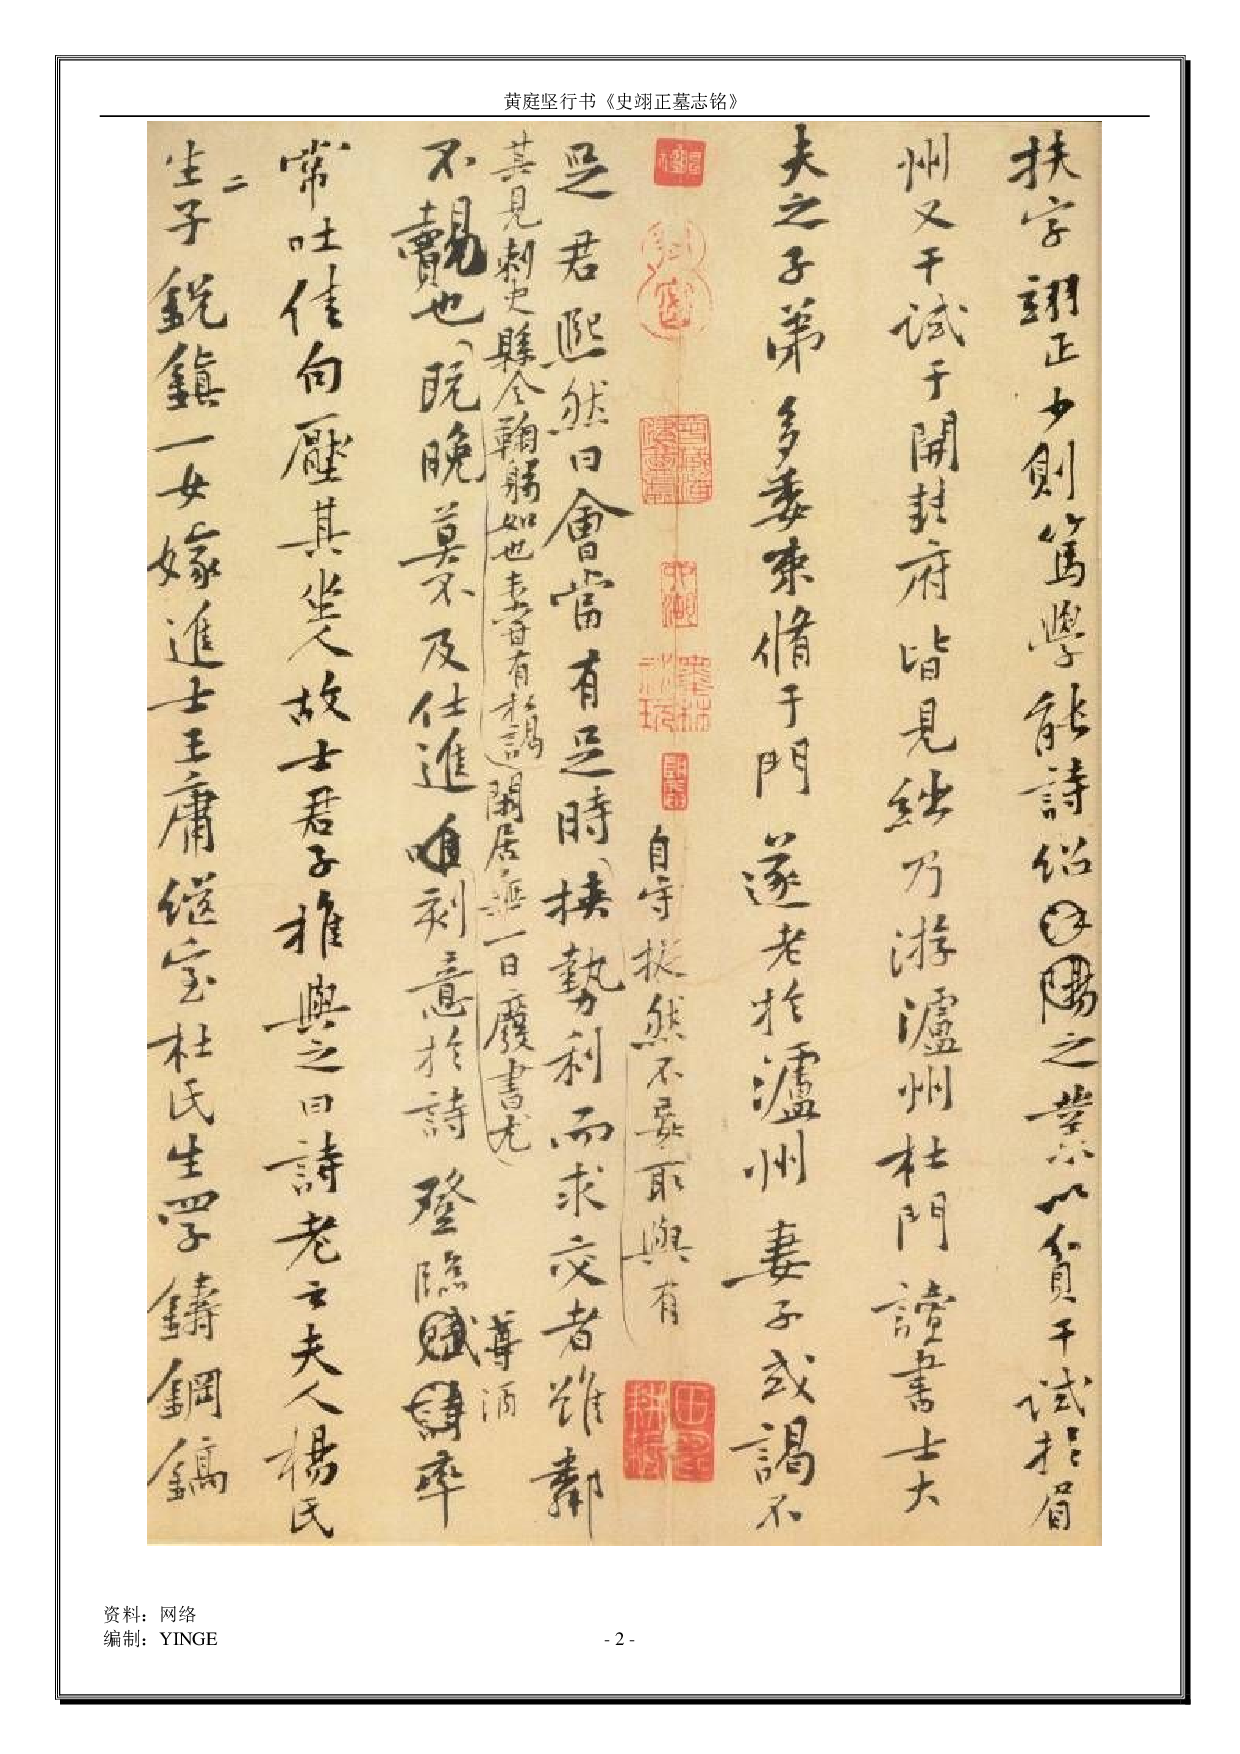 黄庭坚行书《史翊正墓志铭》
扶字翊正少則篤學能詩紹之業以貢干試于眉
州又干試于開封府皆見絀乃游瀘州杜門讀書士大
夫之子弟多委束脩于門遂老於瀘州妻子或謁不
自守摐然不妄取與有
足君熙然曰會當有足時挾勢利而求交者雖鄰
其見刺史縣令翰躬如也未嘗有私謁閑居無一日廢書尤
不覿也既晚莫不及仕進唯刻意於詩登臨賦詩率
尊酒
常吐佳句壓其坐人故士君子推與之曰詩老云夫人楊氏
生二子銳鎮一女嫁進士王庸繼室杜氏生四子鑄鋼鎬
资料：网络
编制：YINGE
- 2 -